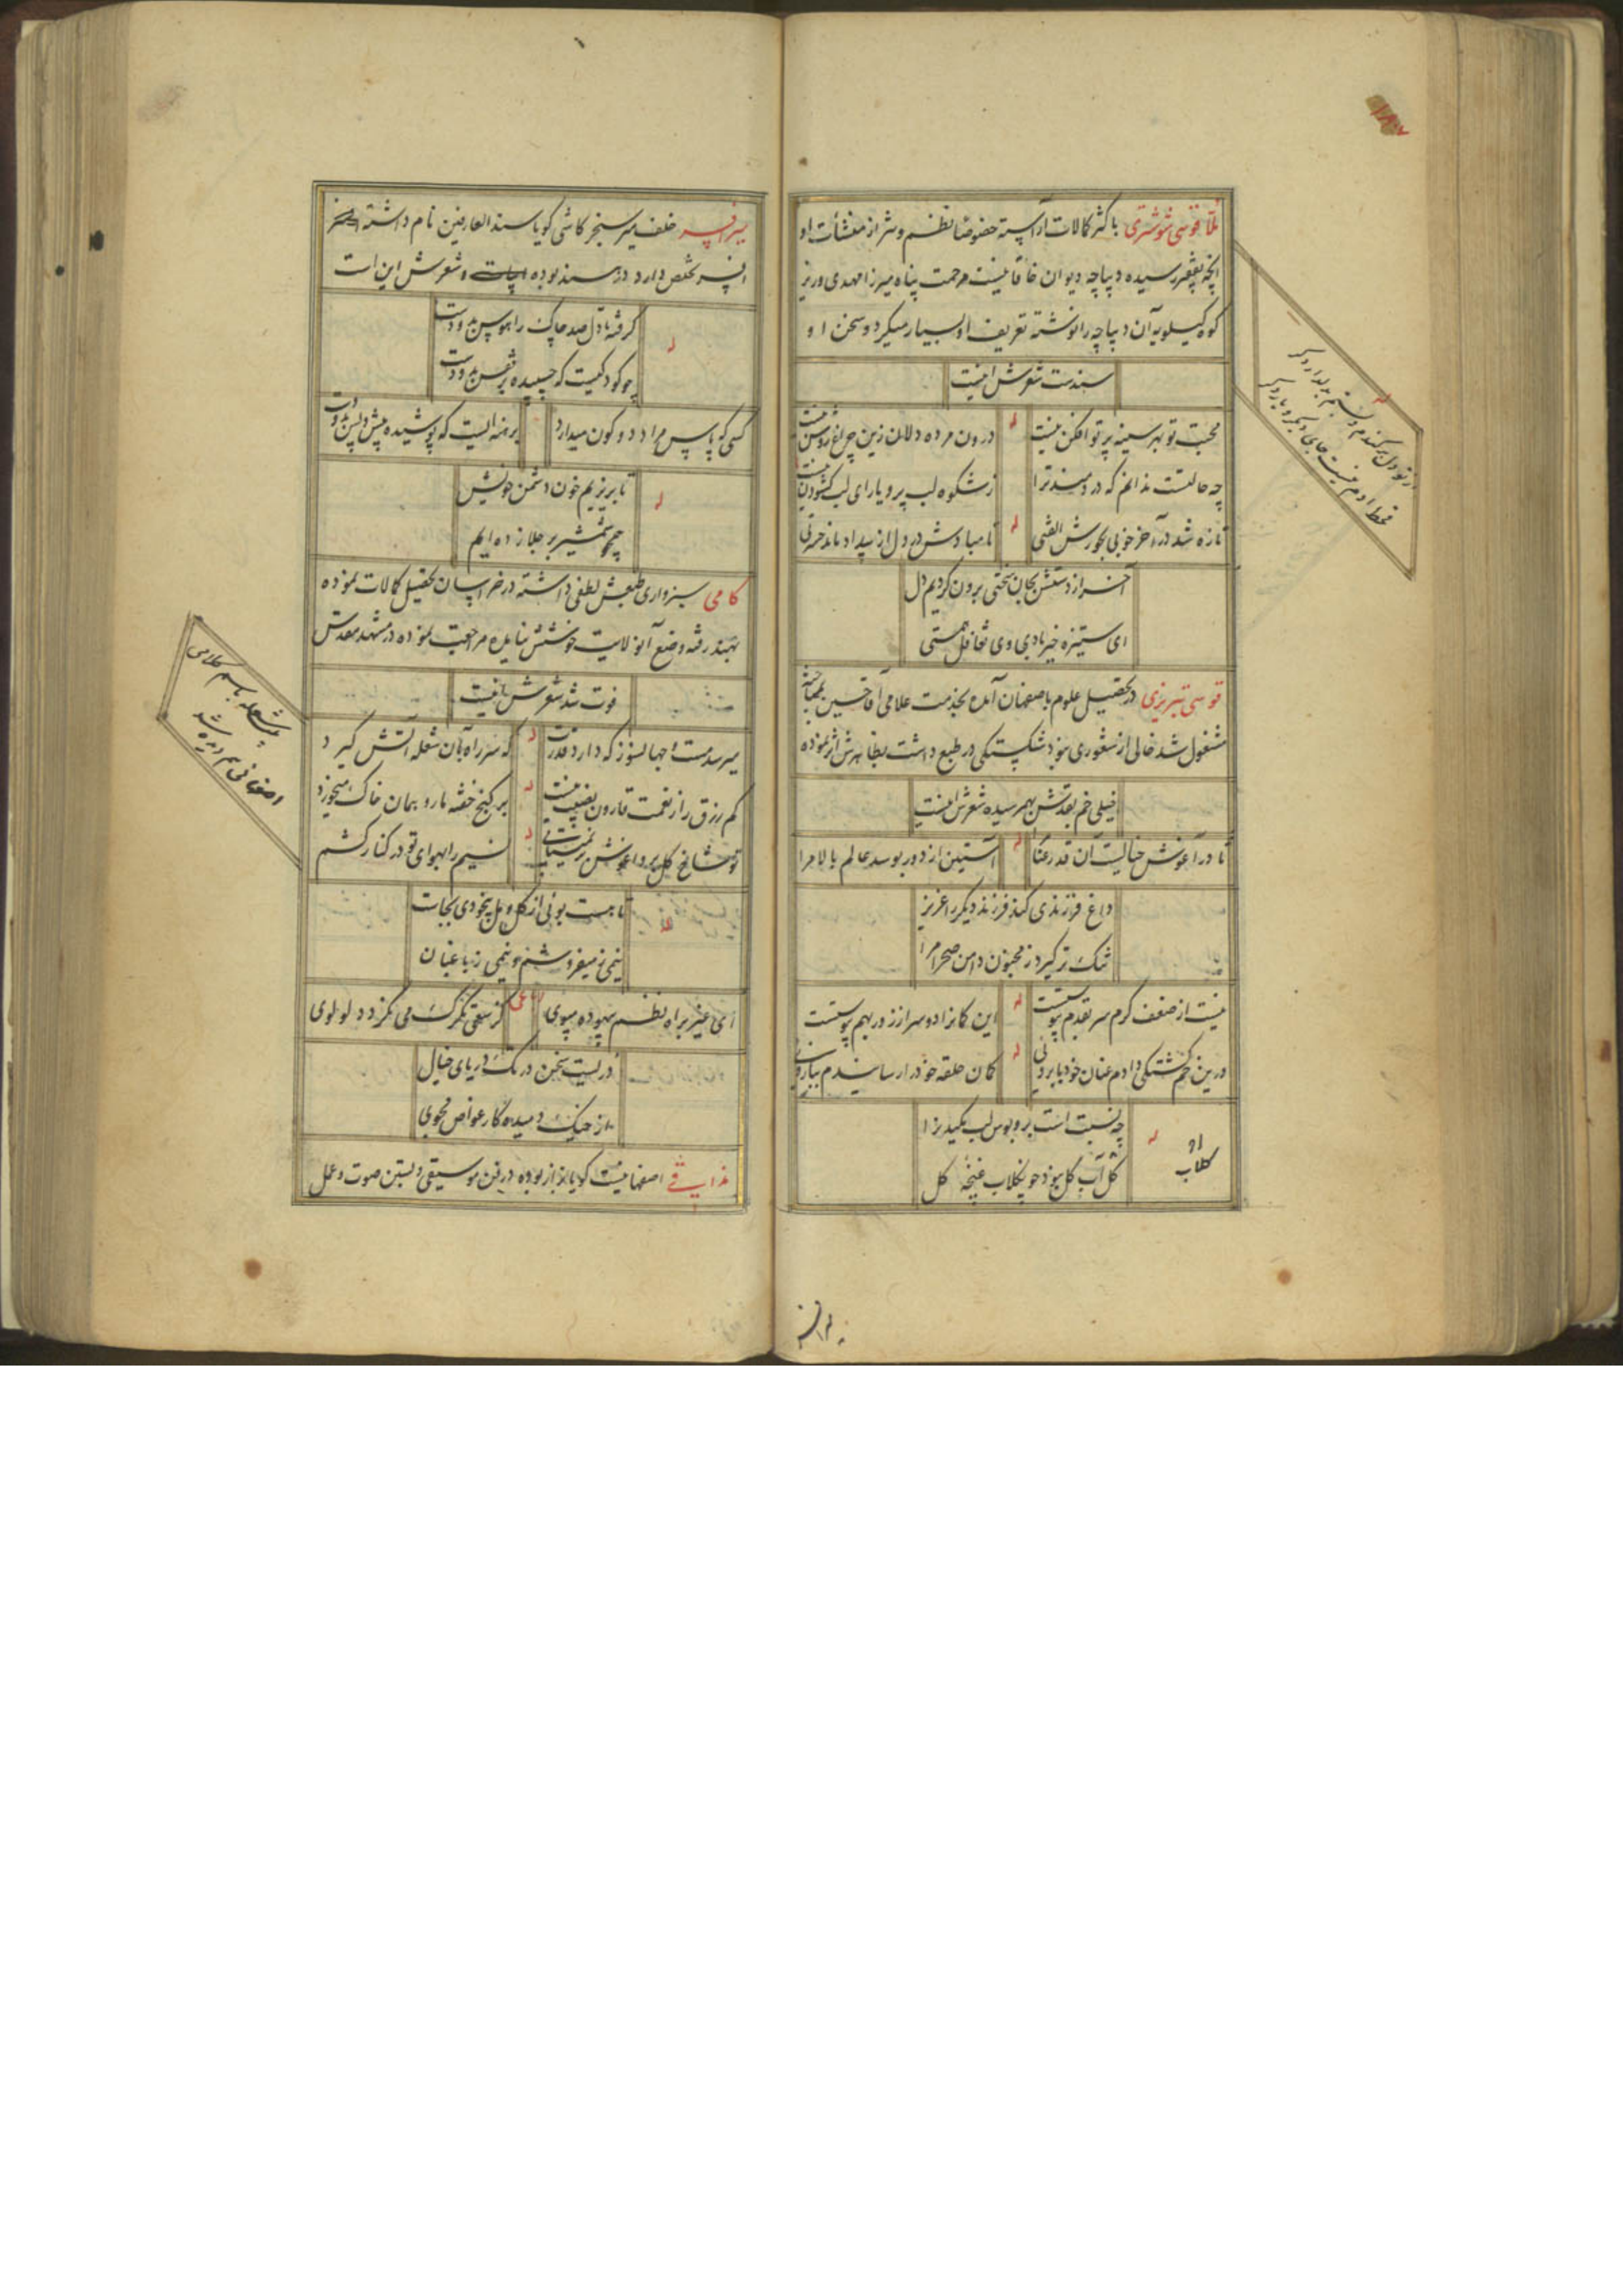 ملا قوسی شوشتری باکثر کمالات آراسته خصوصا نظم و نثر از منشأت او
آنچه بفقیر رسیده دیباچه دیوان خاقانیست مرحمت پناه میرزا مهدی وزیر
کوه کیلویه آن دیباچه را نوشته تعریف او بسیار میکرد و سخن او
سندست شعرش اینست
محبت تو بهر سینه پرتو افکن نیست
درون مرده دلان زین چراغ روشن نیست
چه حالتست ندانم که دردمند ترا
ز شکوه لب پر و یارای لب گشودن نیست
تازه شد در آخر خوبی بجورش الفتی
تا مبادش در دل از بیداد ماند حسرتی
آخر از دستش بجان سختی برون کردیم دل
ای ستیزه خیربادی وی تغافل همتی
از تو دل برکندم و بستم بدلدار دگر
قوسی تبریزی در تحصیل علوم باصفهان آمده بخدمت علامی آقا حسین بمباحثه
مشغول شد خالی از شعوری نبود شکستگی در طبع داشت بظاهرش اثر نموده
خیلی خم بقدش بهم رسیده شعرش اینست
تا در آغوش خیالست آن قد رعنا
آستین از دور بوسد عالم بالا مرا
داغ فرزندی کند فرزند دیگر را عزیز
تنگ تر گیرد ز مجنون دامن صحرا مرا
نیست از ضعف گرم سر بقدم پیوستست
این کمانرا دو سر از زور بهم پیوستست
درین گم گشتگی دادم عنان خود بابروئی
کمان حلقه خود را رساندم ببازوئی
چه نسبت است برو بوس لب مکیدن را
گل آب گل بود خود گلاب غنچه گل
گلاب
میر افسر خلف میر سنجر کاشی گویا سند العارفین نام داشته
افسر تخلص دارد در سند بوده و شعرش این است
گرفته تا دل صد چاک را هوس بدو دست
چو کودکیست که چسبیده بر قفس بدو دست
کسی که پاس مراد دو کون میدارد
برهنه ایست که پوشیده پیش و پس بدو دست
تا بریزیم خون دشمن خویش
همچو شمشیر بر جلا زده ایم
کامی سبزواری طبعش لطفی داشته در خراسان تحصیل کمالات نموده
بهند رفته وضع آنولایت خوشش نیامده مراجعت نموده در مشهد مقدس
فوت شد شعرش اینست
میرسد مست و جهانسوز که دارد قدرت
که سر راه بآن شعله آتش گیرد
کم رزق را ز نعمت قارون نصیب نیست
بر گنج خفته مار و همان خاک میخورد
نسیم را بهوای تو در کنار کشم
تا هست بوئی از گل و مل بیخودی بجاست
نیمی ز میفروشم و نیمی ز باغبان
رباعی
ای غیر براه نظم بیهوده مپوی
کز سعی تگرگ می نگردد لولوی
دریست سخن در تک دریای خیال
مذاقی اصفهانیست گویا بزاز بوده در فن موسیقی و بستن صوت و عمل